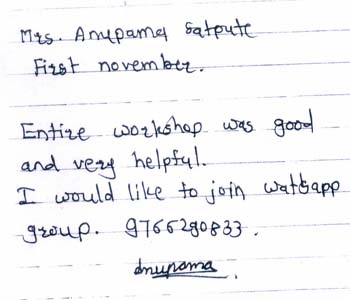 Mrs. Anupama Satpute
First november.
Entire workshop was good
and very helpful.
I would like to join watsapp
group. 9766280833.
Anupama